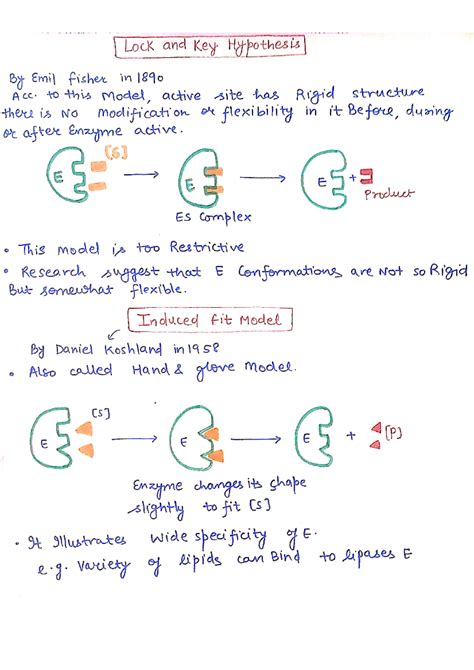 Lock and Key Hypothesis
By Emil fisher in 1890
Acc. to this Model, active site has Rigid structure
there is No Modification or flexibility in it Before, during
or after Enzyme active.
[S]
E
E
E
+
Product
ES Complex
• This Model is too Restrictive
• Research suggest that E Conformations are Not so Rigid
But somewhat flexible.
Induced fit Model
By Daniel Koshland in 1958
• Also called Hand & glove Model.
[S]
E
E
E
+
[P]
Enzyme changes its shape
slightly to fit [S]
• It Illustrates wide specificity of E.
e.g. Variety of lipids can Bind to lipases E